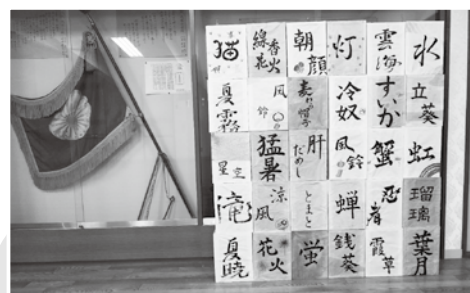 猫
線香花火
朝顔
灯
雲海
水
夏霧
風鈴
麦わら帽子
冷奴
すいか
立葵
星空
猛暑
肝だめし
風鈴
蟹
虹
滝
涼風
とまと
蝉
忍者
瑠璃
夏暁
花火
蛍
銭葵
霞草
葉月